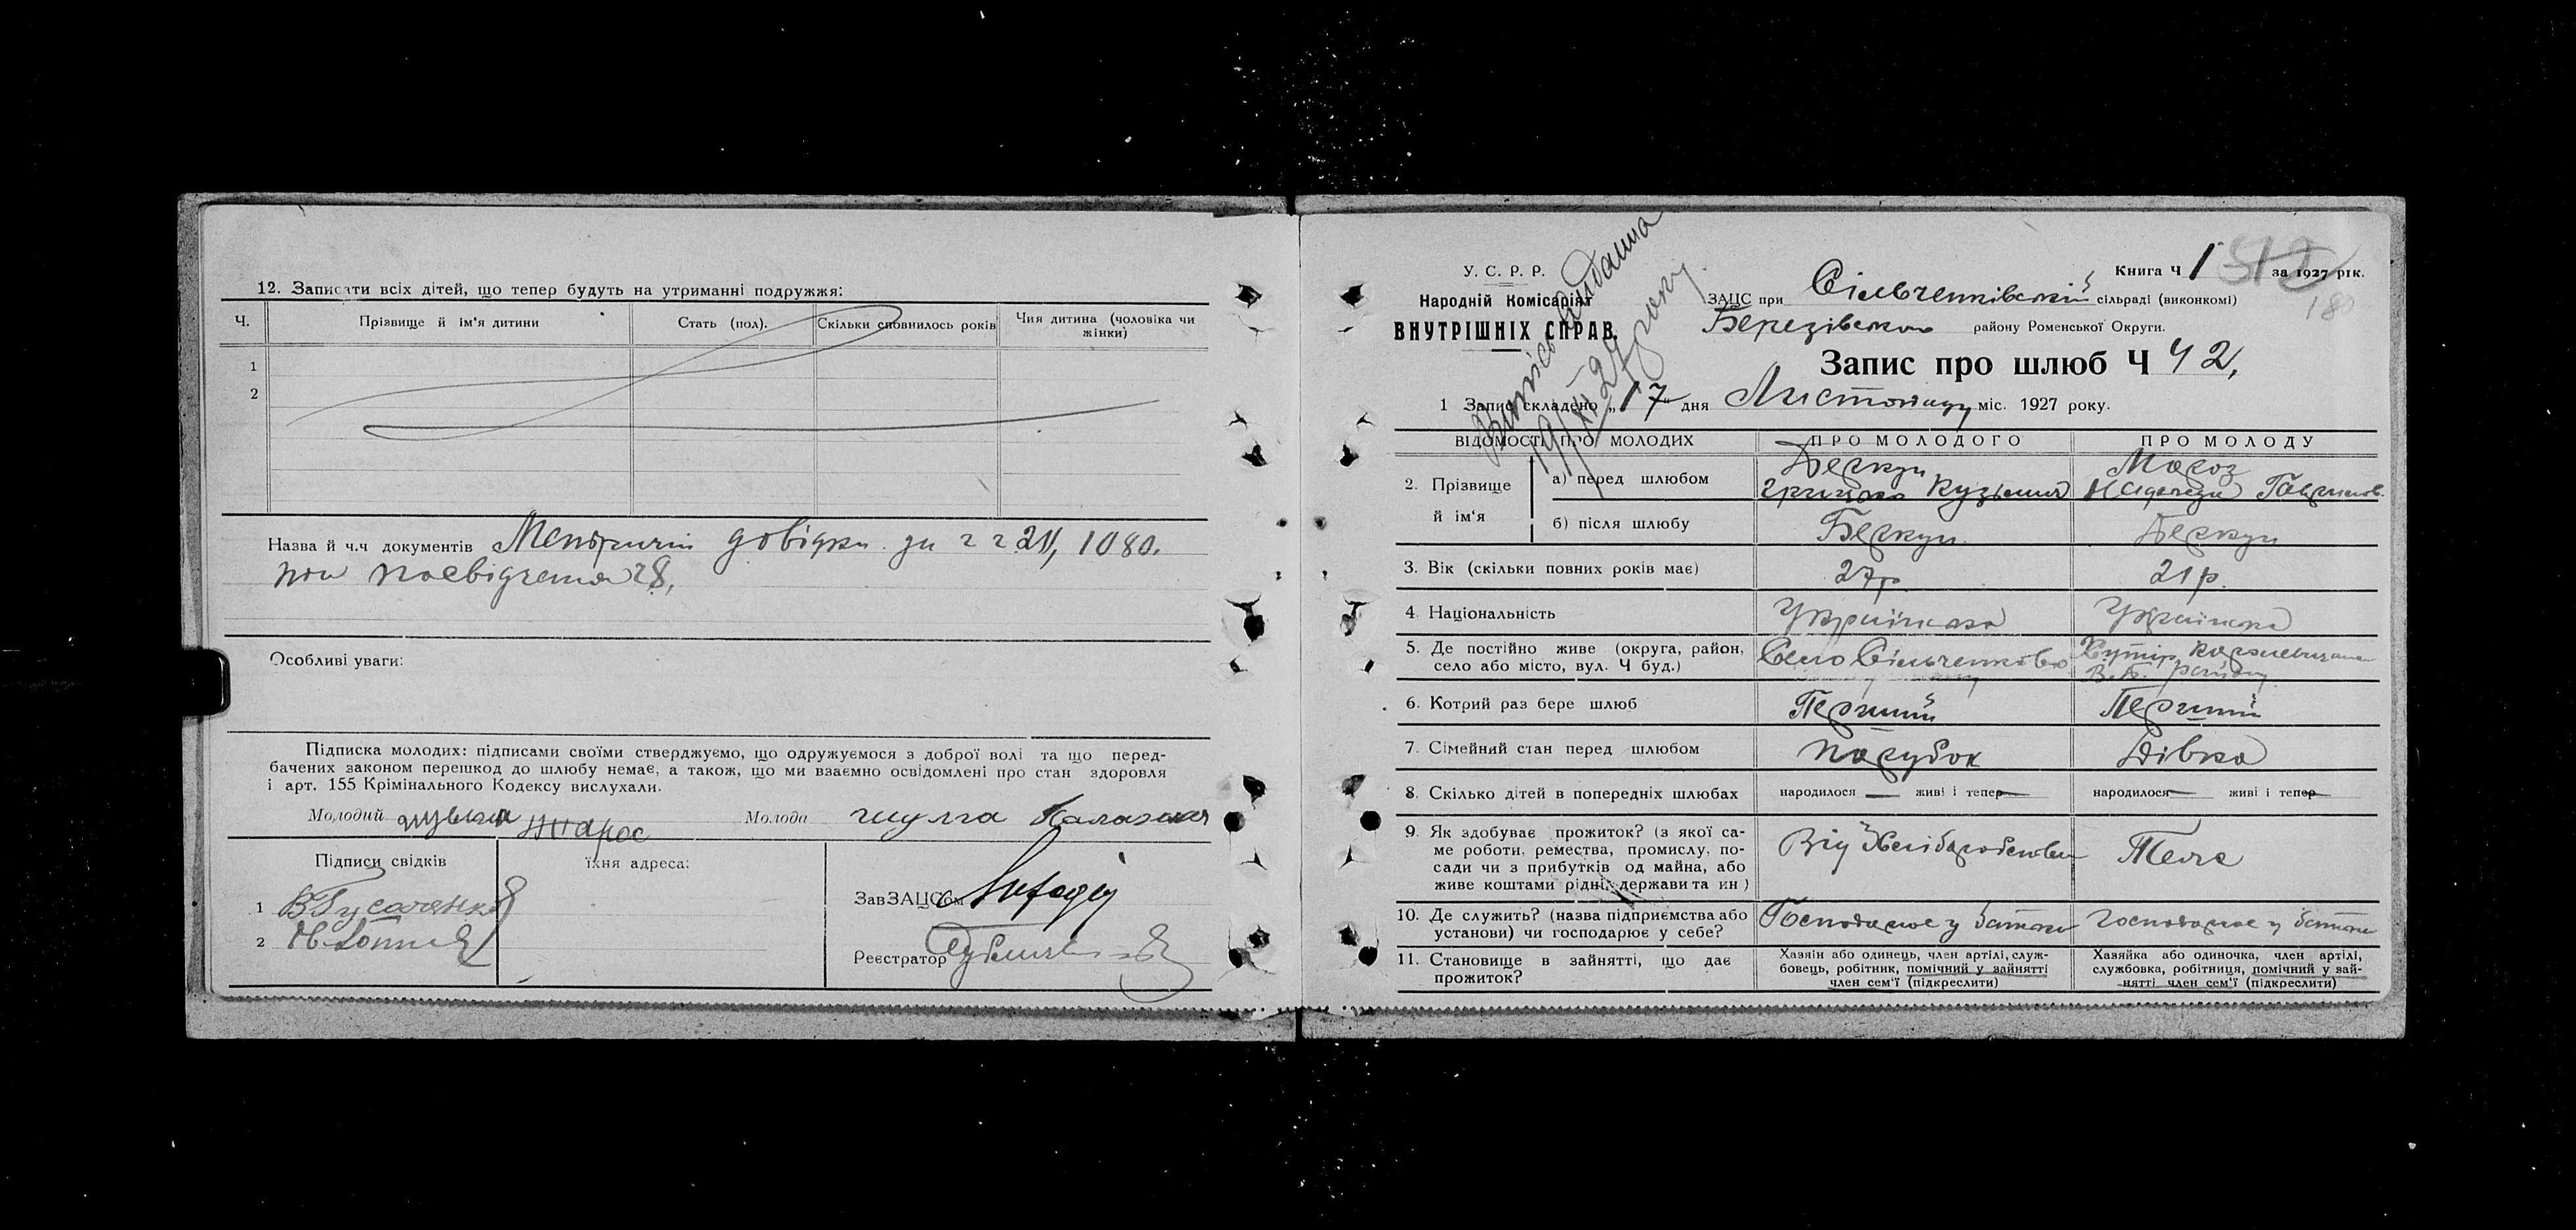 12. Записати всіх дітей, що тепер будуть на утриманні подружжя:
Ч. Прізвище й ім'я дитини Стать (пол). Скільки сповнилось років Чия дитина (чоловіка чи жінки)
1
2
Назва й ч.ч документів довідки за 1080.
28,
Особливі уваги:
Підписка молодих: підписами своїми стверджуємо, що одружуємося з доброї волі та що перед-
бачених законом перешкод до шлюбу немає, а також, що ми взаємно освідомлені про стан здоровля
і арт. 155 Крімінального Кодексу вислухали.
Молодий Молода шулга Палажка
Підписи свідків їхня адреса:
1
2
ЗавЗАЦСом
Реєстратор
У. С. Р. Р.
Народній Комісаріят
ВНУТРІШНІХ СПРАВ.
Випись видана
19/XI 27 року
Книга Ч 1 за 1927 рік.
180
ЗАЦС при Сільченківській сільраді (виконкомі)
Березівського району Роменської Округи.
Запис про шлюб Ч 42,
1 Запис складено „17" дня Листопаду міс. 1927 року.
ВІДОМОСТІ ПРО МОЛОДИХ ПРО МОЛОДОГО ПРО МОЛОДУ
2. Прізвище й ім'я
а) перед шлюбом Беркун Грицько Кузьмич Мороз Надежда Гаврилов.
б) після шлюбу Беркун Беркун
3. Вік (скільки повних років має) 27р 21р.
4. Національність Українська Українка
5. Де постійно живе (округа, район, село або місто, вул. Ч буд.) Село Сільченково Хутір В.Б. району
6. Котрий раз бере шлюб Перший Перший
7. Сімейний стан перед шлюбом Парубок Дівка
8. Скілько дітей в попередніх шлюбах народилося — живі і тепер — народилося — живі і тепер —
9. Як здобуває прожиток? (з якої са-
ме роботи, ремества, промислу, по-
сади чи з прибутків од майна, або
живе коштами рідні, держави та ин) Від Хліборобства Теже
10. Де служить? (назва підприємства або
установи) чи господарює у себе? Господарює у батька господарює у батька
11. Становище в зайнятті, що дає
прожиток?
Хазяін або одинець, член артілі, служ-
бовець, робітник, помічний у зайнятті
член сем'ї (підкреслити)
Хазяйка або одиночка, член артілі,
службовка, робітниця, помічний у зай-
нятті член сем'ї (підкреслити)